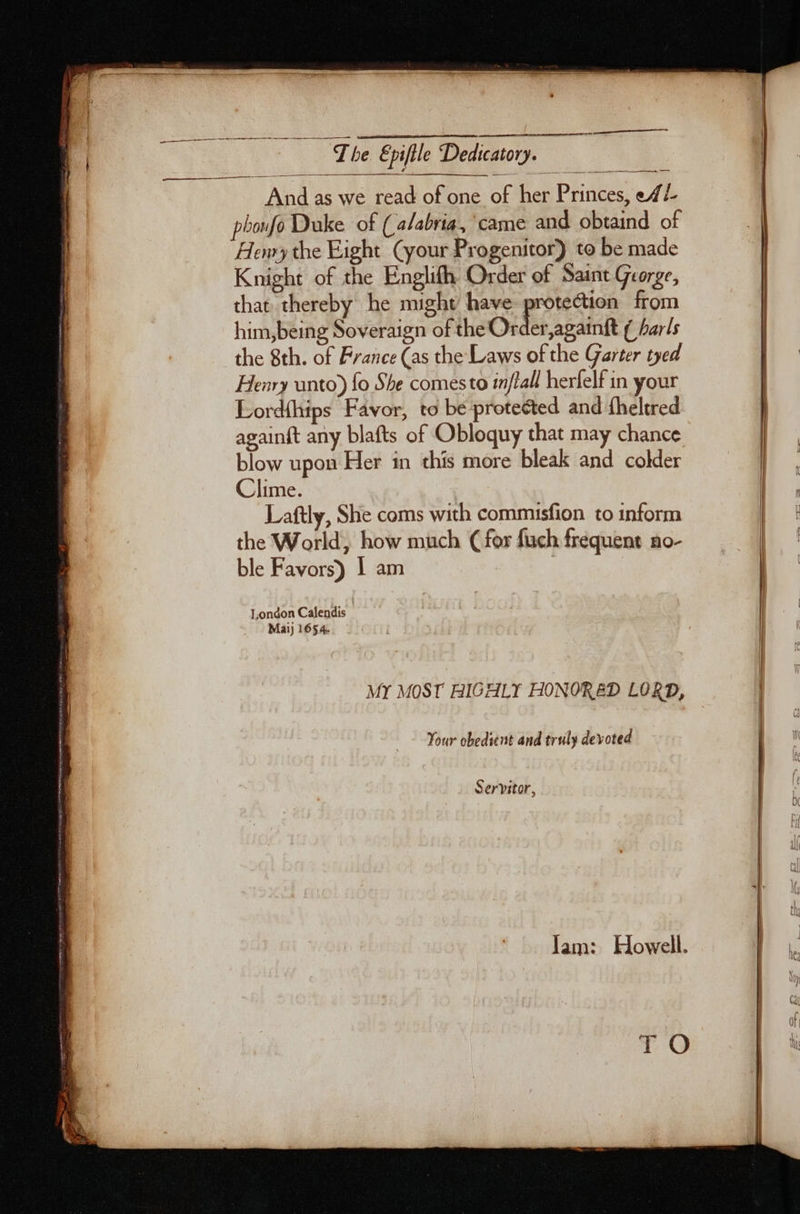 The Epiſtle Dedicatory.
And as we read of one of her Princes, Al-
phonſo Duke of Calabria, came and obtaind of
Henry the Eight (your Progenitor) to be made
Knight of the Engliſh Order of Saint George,
that thereby he might have protection from
him,being Soveraign of the Order,againſt Charls
the 8th. of France (as the Laws of the Garter tyed
Henry unto) ſo She comes to inſtall herſelf in your
Lordſhips Favor, to be protected and ſheltred
againſt any blaſts of Obloquy that may chance
blow upon Her in this more bleak and colder
Clime.
Laſtly, She coms with commisſion to inform
the World, how much (for ſuch frequent no-
ble Favors) I am
London Calendis
Maij 1654.
MY MOST HIGHLY HONORED LORD,
Your obedient and truly devoted
Servitor,
Iam: Howell.
TO